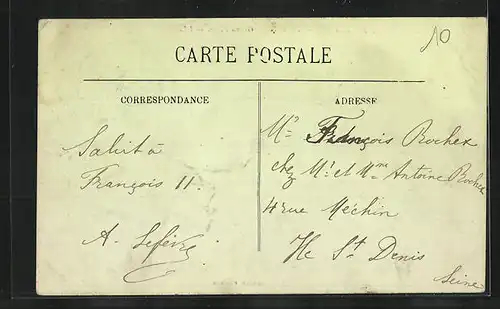 10
CARTE POSTALE
CORRESPONDANCE
ADRESSE
Salut à
François II.
A. Lefèvre
Mr François Rocher
chez Mr et Mme Antoine Rocher
4 rue Méchin
Ile St Denis
Seine